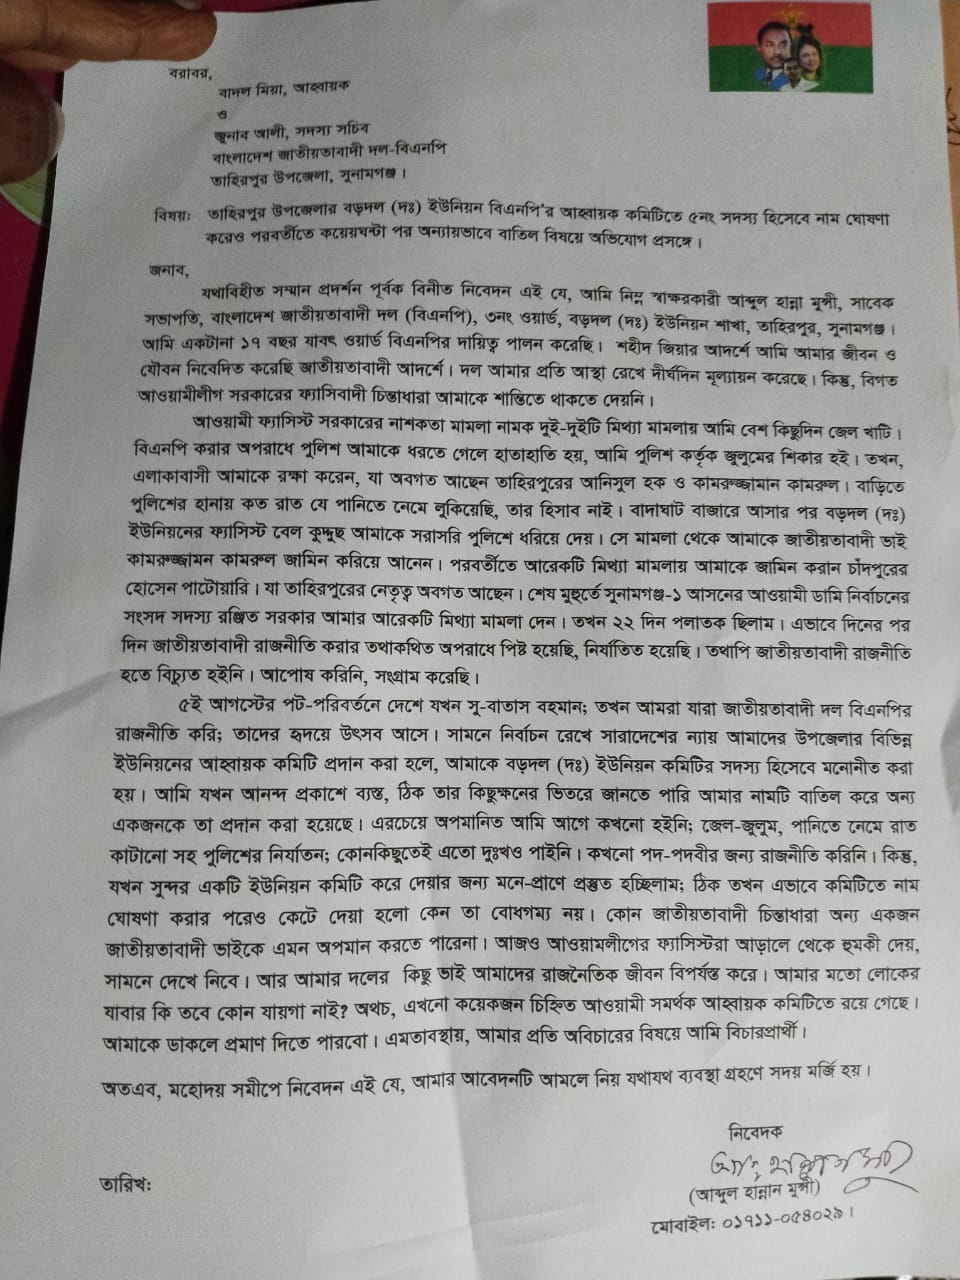 বরাবর,
বাদল মিয়া, আহ্বায়ক
ও
জুনাব আলী, সদস্য সচিব
বাংলাদেশ জাতীয়তাবাদী দল-বিএনপি
তাহিরপুর উপজেলা, সুনামগঞ্জ।
বিষয়: তাহিরপুর উপজেলার বড়দল (দঃ) ইউনিয়ন বিএনপি'র আহ্বায়ক কমিটিতে ৫নং সদস্য হিসেবে নাম ঘোষণা
করেও পরবর্তীতে কয়েয়ঘন্টা পর অন্যায়ভাবে বাতিল বিষয়ে অভিযোগ প্রসঙ্গে।
জনাব,
যথাবিহীত সম্মান প্রদর্শন পূর্বক বিনীত নিবেদন এই যে, আমি নিম্ন স্বাক্ষরকারী আব্দুল হান্না মুন্সী, সাবেক
সভাপতি, বাংলাদেশ জাতীয়তাবাদী দল (বিএনপি), ৩নং ওয়ার্ড, বড়দল (দঃ) ইউনিয়ন শাখা, তাহিরপুর, সুনামগঞ্জ।
আমি একটানা ১৭ বছর যাবৎ ওয়ার্ড বিএনপির দায়িত্ব পালন করেছি। শহীদ জিয়ার আদর্শে আমি আমার জীবন ও
যৌবন নিবেদিত করেছি জাতীয়তাবাদী আদর্শে। দল আমার প্রতি আস্থা রেখে দীর্ঘদিন মূল্যায়ন করেছে। কিন্তু, বিগত
আওয়ামীলীগ সরকারের ফ্যাসিবাদী চিন্তাধারা আমাকে শান্তিতে থাকতে দেয়নি।
আওয়ামী ফ্যাসিস্ট সরকারের নাশকতা মামলা নামক দুই-দুইটি মিথ্যা মামলায় আমি বেশ কিছুদিন জেল খাটি।
বিএনপি করার অপরাধে পুলিশ আমাকে ধরতে গেলে হাতাহাতি হয়, আমি পুলিশ কর্তৃক জুলুমের শিকার হই। তখন,
এলাকাবাসী আমাকে রক্ষা করেন, যা অবগত আছেন তাহিরপুরের আনিসুল হক ও কামরুজ্জামান কামরুল। বাড়িতে
পুলিশের হানায় কত রাত যে পানিতে নেমে লুকিয়েছি, তার হিসাব নাই। বাদাঘাট বাজারে আসার পর বড়দল (দঃ)
ইউনিয়নের ফ্যাসিস্ট বেল কুদ্দুছ আমাকে সরাসরি পুলিশে ধরিয়ে দেয়। সে মামলা থেকে আমাকে জাতীয়তাবাদী ভাই
কামরুজ্জামন কামরুল জামিন করিয়ে আনেন। পরবর্তীতে আরেকটি মিথ্যা মামলায় আমাকে জামিন করান চাঁদপুরের
হোসেন পাটোয়ারি। যা তাহিরপুরের নেতৃত্ব অবগত আছেন। শেষ মুহুর্তে সুনামগঞ্জ-১ আসনের আওয়ামী ডামি নির্বাচনের
সংসদ সদস্য রঞ্জিত সরকার আমার আরেকটি মিথ্যা মামলা দেন। তখন ২২ দিন পলাতক ছিলাম। এভাবে দিনের পর
দিন জাতীয়তাবাদী রাজনীতি করার তথাকথিত অপরাধে পিষ্ট হয়েছি, নির্যাতিত হয়েছি। তথাপি জাতীয়তাবাদী রাজনীতি
হতে বিচ্যুত হইনি। আপোষ করিনি, সংগ্রাম করেছি।
৫ই আগস্টের পট-পরিবর্তনে দেশে যখন সু-বাতাস বহমান; তখন আমরা যারা জাতীয়তাবাদী দল বিএনপির
রাজনীতি করি; তাদের হৃদয়ে উৎসব আসে। সামনে নির্বাচন রেখে সারাদেশের ন্যায় আমাদের উপজেলার বিভিন্ন
ইউনিয়নের আহ্বায়ক কমিটি প্রদান করা হলে, আমাকে বড়দল (দঃ) ইউনিয়ন কমিটির সদস্য হিসেবে মনোনীত করা
হয়। আমি যখন আনন্দ প্রকাশে ব্যস্ত, ঠিক তার কিছুক্ষনের ভিতরে জানতে পারি আমার নামটি বাতিল করে অন্য
একজনকে তা প্রদান করা হয়েছে। এরচেয়ে অপমানিত আমি আগে কখনো হইনি; জেল-জুলুম, পানিতে নেমে রাত
কাটানো সহ পুলিশের নির্যাতন; কোনকিছুতেই এতো দুঃখও পাইনি। কখনো পদ-পদবীর জন্য রাজনীতি করিনি। কিন্তু,
যখন সুন্দর একটি ইউনিয়ন কমিটি করে দেয়ার জন্য মনে-প্রাণে প্রস্তুত হচ্ছিলাম; ঠিক তখন এভাবে কমিটিতে নাম
ঘোষণা করার পরেও কেটে দেয়া হলো কেন তা বোধগম্য নয়। কোন জাতীয়তাবাদী চিন্তাধারা অন্য একজন
জাতীয়তাবাদী ভাইকে এমন অপমান করতে পারেনা। আজও আওয়ামলীগের ফ্যাসিস্টরা আড়ালে থেকে হুমকী দেয়,
সামনে দেখে নিবে। আর আমার দলের কিছু ভাই আমাদের রাজনৈতিক জীবন বিপর্যস্ত করে। আমার মতো লোকের
যাবার কি তবে কোন যায়গা নাই? অথচ, এখনো কয়েকজন চিহ্নিত আওয়ামী সমর্থক আহ্বায়ক কমিটিতে রয়ে গেছে।
আমাকে ডাকলে প্রমাণ দিতে পারবো। এমতাবস্থায়, আমার প্রতি অবিচারের বিষয়ে আমি বিচারপ্রার্থী।
অতএব, মহোদয় সমীপে নিবেদন এই যে, আমার আবেদনটি আমলে নিয় যথাযথ ব্যবস্থা গ্রহণে সদয় মর্জি হয়।
নিবেদক
(আব্দুল হান্নান মুন্সী)
তারিখ:
মোবাইল: ০১৭১১-০৫৪০২৯।